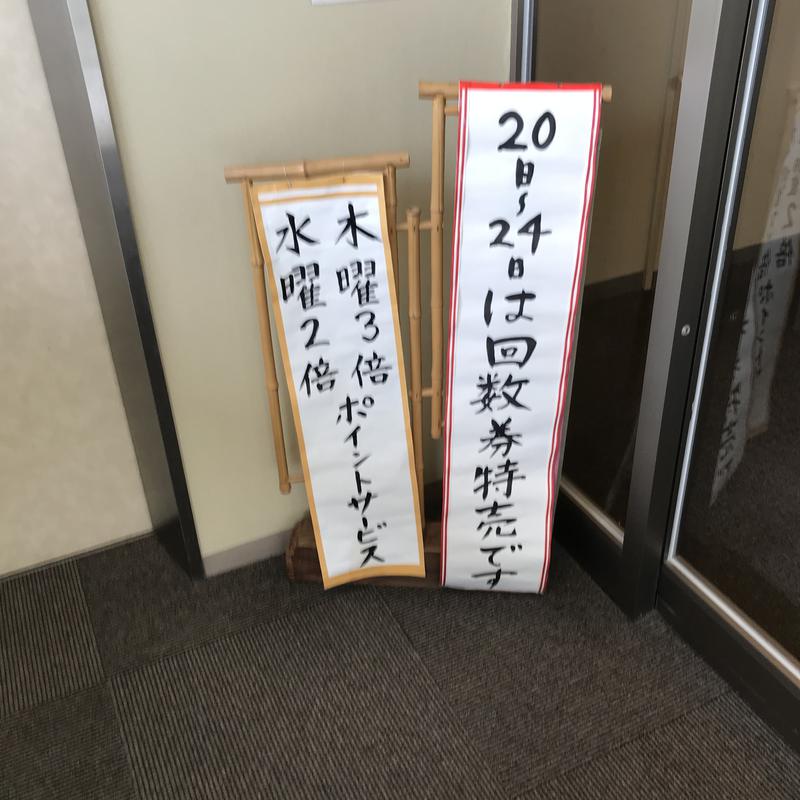 20日~24日は回数券特売です
木曜3倍ポイントサービス
水曜2倍